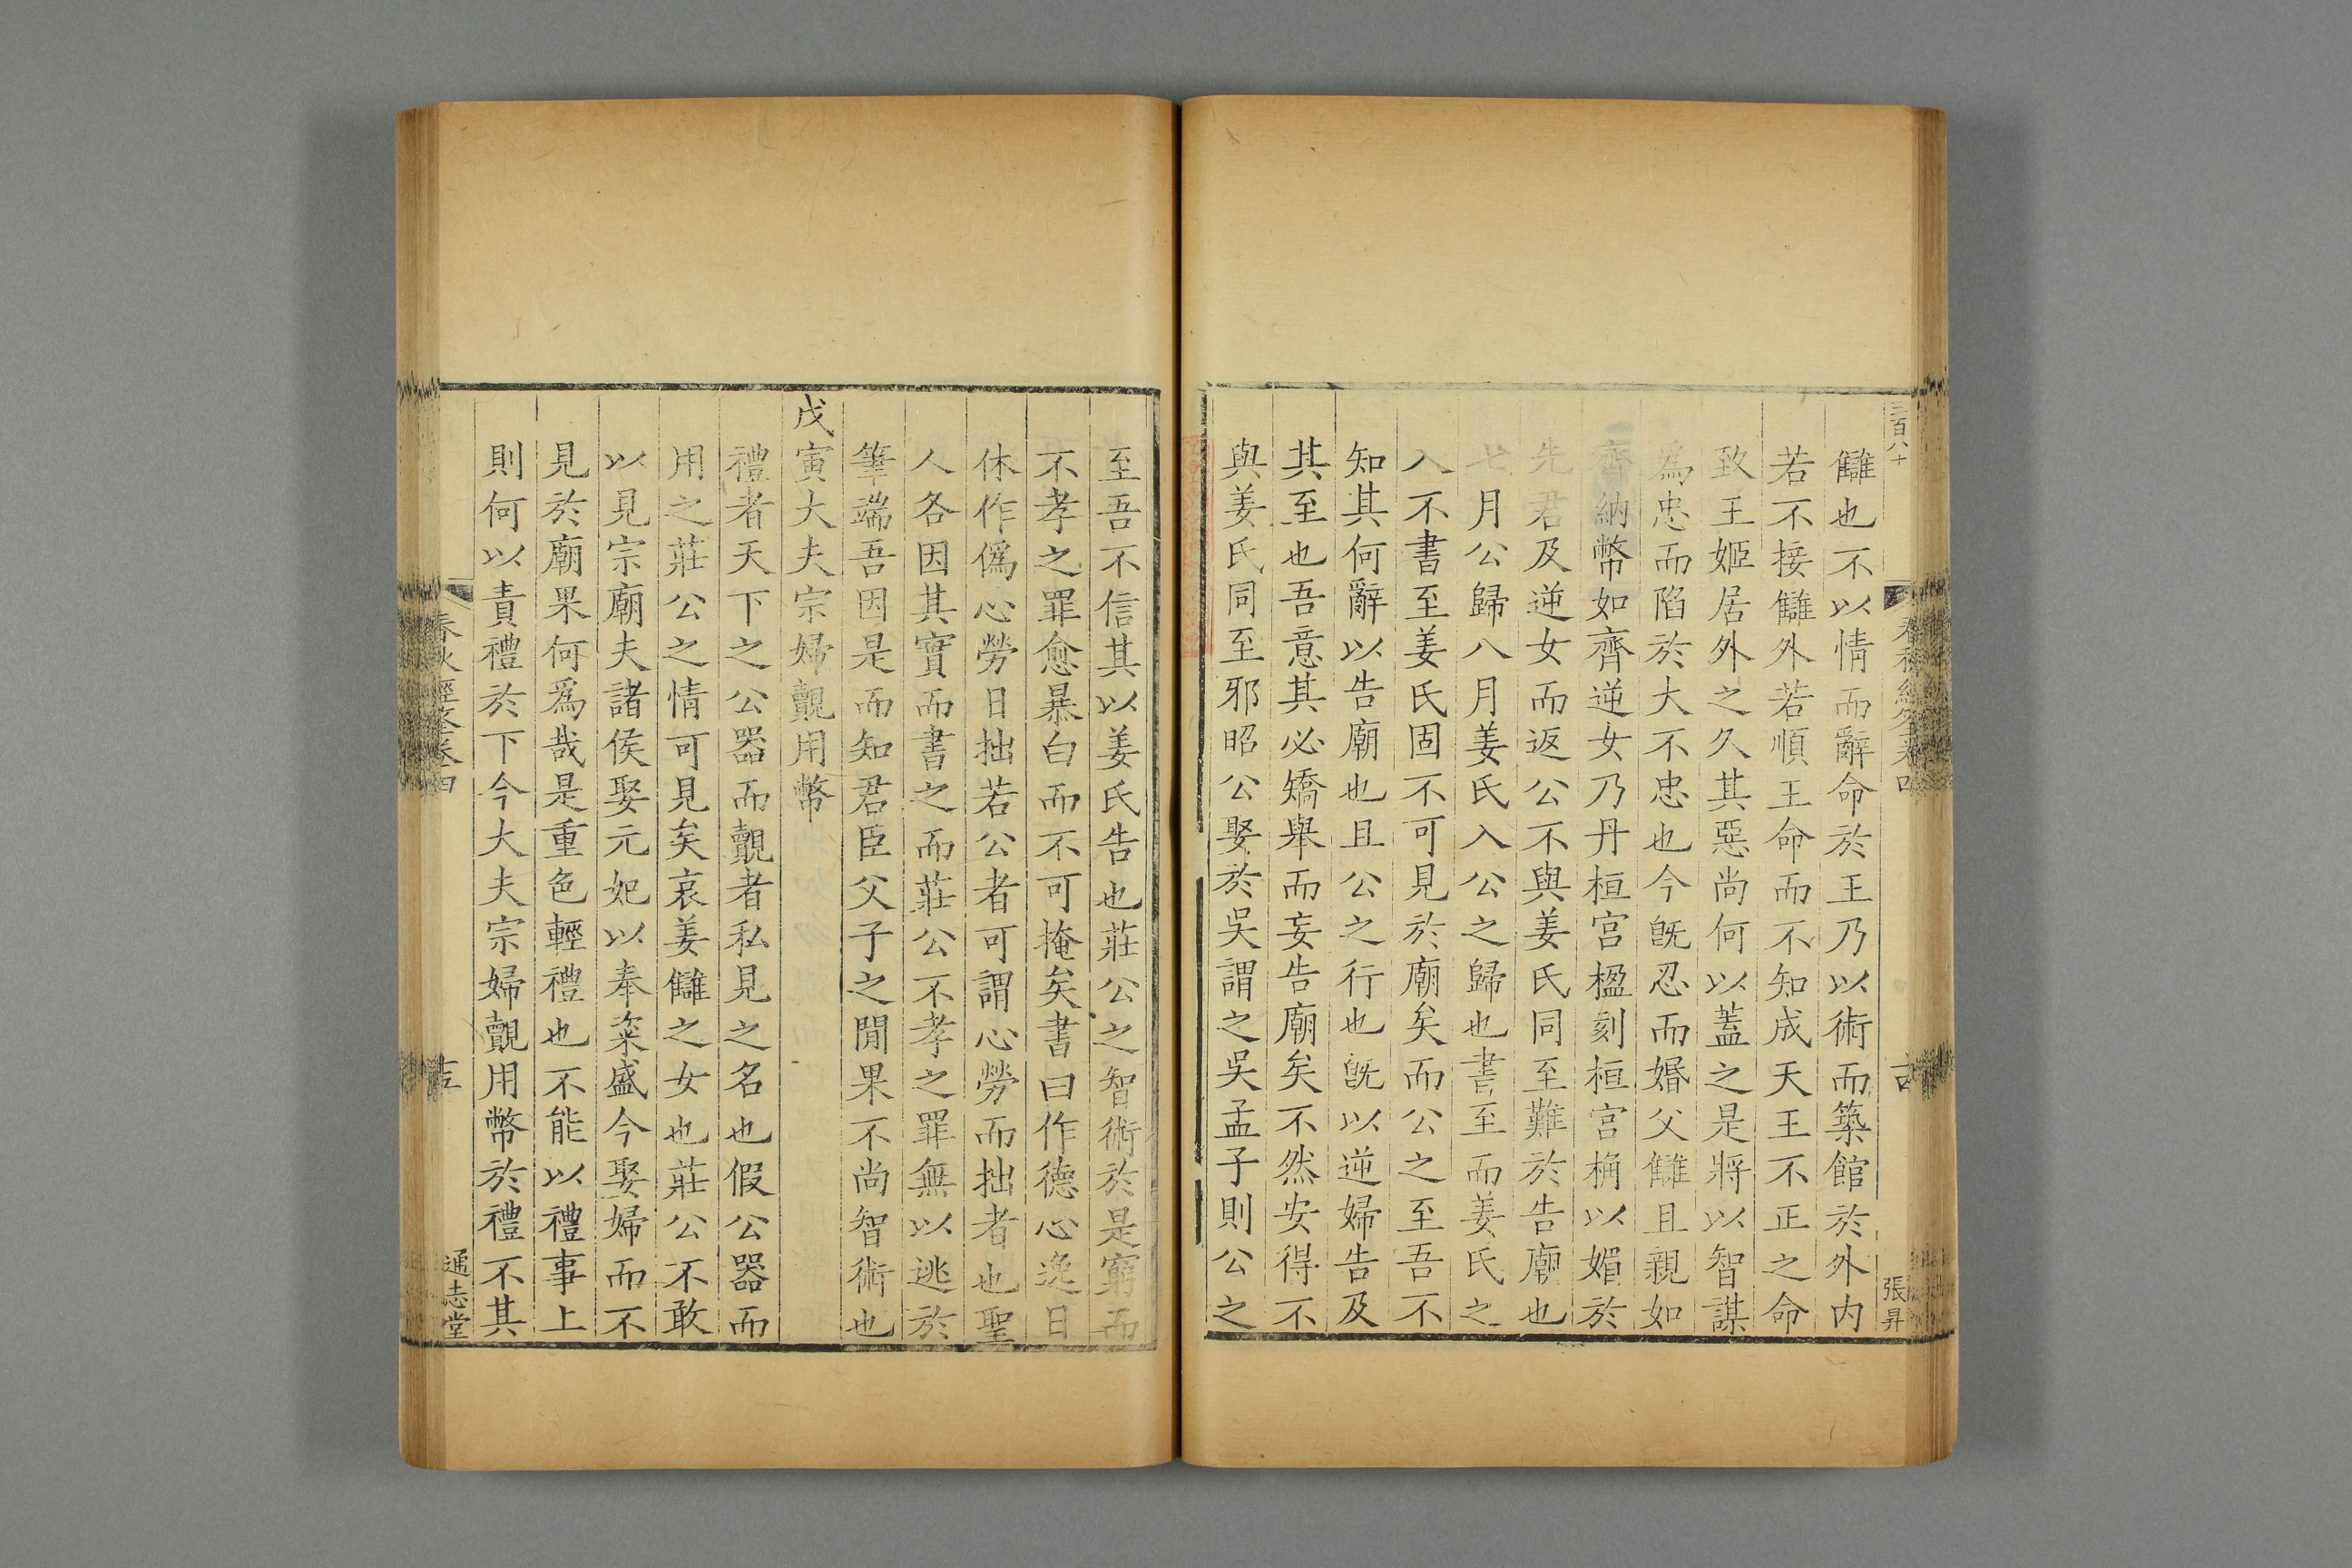 三百八十
張昇
讎也不以情而辭命於王乃以術而築館於外内
若不接讎外若順王命而不知成天王不正之命
致王姬居外之久其惡尚何以蓋之是將以智謀
爲忠而陷於大不忠也今既忍而婚父讎且親如
齊納幣如齊逆女乃丹桓宮楹刻桓宮桷以媚於
先君及逆女而返公不與姜氏同至難於告廟也
七月公歸八月姜氏入公之歸也書至而姜氏之
入不書至姜氏固不可見於廟矣而公之至吾不
知其何辭以告廟也且公之行也既以逆婦告及
其至也吾意其必矯舉而妄告廟矣不然安得不
與姜氏同至邪昭公娶於吳謂之吳孟子則公之
至吾不信其以姜氏告也莊公之智術於是窮而
不孝之罪愈暴白而不可掩矣書曰作德心逸日
休作僞心勞日拙若公者可謂心勞而拙者也聖
人各因其實而書之而莊公不孝之罪無以逃於
筆端吾因是而知君臣父子之閒果不尚智術也
戊寅大夫宗婦覿用幣
禮者天下之公器而覿者私見之名也假公器而
用之莊公之情可見矣哀姜讎之女也莊公不敢
以見宗廟夫諸侯娶元妃以奉粢盛今娶婦而不
見於廟果何爲哉是重色輕禮也不能以禮事上
則何以責禮於下今大夫宗婦覿用幣於禮不其
春秋經筌卷四
通志堂